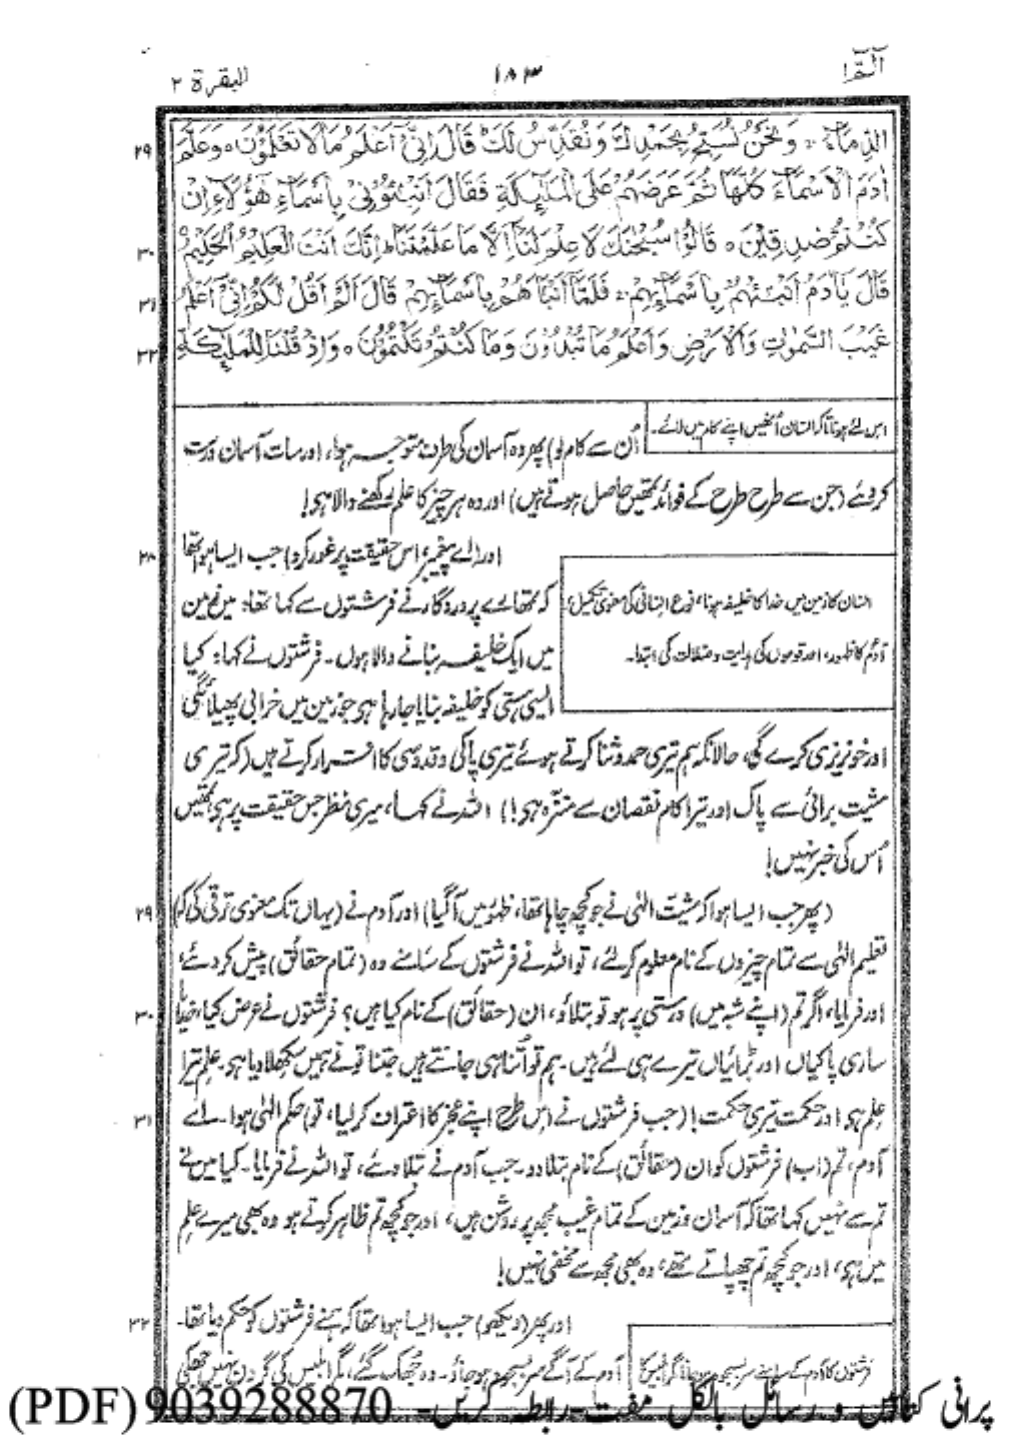 آلٓمّٓ ١
١٨٣
البقرة ٢
الدِّمَآءَ ۚ وَنَحْنُ نُسَبِّحُ بِحَمْدِكَ وَنُقَدِّسُ لَكَ ۖ قَالَ اِنِّیْٓ اَعْلَمُ مَا لَا تَعْلَمُوْنَ ٥ وَعَلَّمَ
٢٩
اٰدَمَ الْاَسْمَآءَ كُلَّهَا ثُمَّ عَرَضَهُمْ عَلَى الْمَلٰٓئِكَةِ فَقَالَ اَنْبِئُوْنِیْ بِاَسْمَآءِ هٰٓؤُلَآءِ اِنْ
كُنْتُمْ صٰدِقِیْنَ ٥ قَالُوْا سُبْحٰنَكَ لَا عِلْمَ لَنَآ اِلَّا مَا عَلَّمْتَنَا ؕ اِنَّكَ اَنْتَ الْعَلِیْمُ الْحَكِیْمُ
٣٠
قَالَ یٰٓاٰدَمُ اَنْۢبِئْهُمْ بِاَسْمَآئِهِمْ ۚ فَلَمَّآ اَنْۢبَاَهُمْ بِاَسْمَآئِهِمْ قَالَ اَلَمْ اَقُلْ لَّكُمْ اِنِّیْٓ اَعْلَمُ
٣١
غَیْبَ السَّمٰوٰتِ وَالْاَرْضِ وَاَعْلَمُ مَا تُبْدُوْنَ وَمَا كُنْتُمْ تَكْتُمُوْنَ ٥ وَاِذْ قُلْنَا لِلْمَلٰٓئِكَةِ
٣٢
اس لئے ہونا تاکہ انسان اُنھیں اپنے کام میں لائے۔
اُن سے کام لو) پھر وہ آسمان کی طرف متوجہ ہوا، اور سات آسمان درست
کر دئے (جن سے طرح طرح کے فوائد تمھیں حاصل ہوتے ہیں) اور وہ ہر چیز کا علم رکھنے والا ہی!
اور (اے پیغمبر، اس حقیقت پر غور کرو) جب ایسا ہوا تھا
٢٨
انسان کا زمین میں خدا کا خلیفہ ہونا، نوع انسانی کی معنوی تکمیل،
آدمؑ کا ظہور، اور قوموں کی ہدایت و ضلالت کی ابتدا۔
کہ تمھارے پروردگار نے فرشتوں سے کہا تھا: میں زمین
میں ایک خلیفہ بنانے والا ہوں۔ فرشتوں نے کہا: کیا
ایسی ہستی کو خلیفہ بنایا جا رہا ہی جو زمین میں خرابی پھیلائیگی
اور خونریزی کرے گی، حالانکہ ہم تیری حمد و ثنا کرتے ہوئے تیری پاکی و قدوسی کا اقرار کرتے ہیں (کہ تیری
مشیت برائی سے پاک اور تیرا کام نقصان سے منزّہ ہی!) اللہ نے کہا، میری نظر جس حقیقت پر ہی، تمھیں
اُس کی خبر نہیں!
(پھر جب ایسا ہوا کہ مشیت الٰہی نے جو کچھ چاہا تھا، ظہور میں آگیا) اور آدم نے (یہاں تک معنوی ترقی کی کہ)
٢٩
تعلیم الٰہی سے تمام چیزوں کے نام معلوم کر لئے، تو اللہ نے فرشتوں کے سامنے وہ (تمام حقائق) پیش کر دئے،
اور فرمایا، اگر تم (اپنے شبہ میں) درستی پر ہو تو بتلاؤ، ان (حقائق) کے نام کیا ہیں؟ فرشتوں نے عرض کیا، خدایا
٣٠
ساری پاکیاں اور بڑائیاں تیرے ہی لئے ہیں۔ ہم تو اُتنا ہی جانتے ہیں جتنا تو نے ہمیں سکھلا دیا ہی۔ علم تیرا
علم ہی اور حکمت تیری حکمت! (جب فرشتوں نے اس طرح اپنے عجز کا اعتراف کر لیا، تو) حکم الٰہی ہوا۔ اے
٣١
آدم، تم (اب) فرشتوں کو ان (حقائق) کے نام بتلا دو۔ جب آدم نے بتلا دئے، تو اللہ نے فرمایا۔ کیا میں نے
تم سے نہیں کہا تھا کہ آسمان و زمین کے تمام غیب مجھ پر روشن ہیں، اور جو کچھ تم ظاہر کرتے ہو وہ بھی میرے علم
میں ہی، اور جو کچھ تم چھپاتے تھے، وہ بھی مجھ سے مخفی نہیں!
اور پھر (دیکھو) جب ایسا ہوا تھا کہ ہم نے فرشتوں کو حکم دیا تھا۔
٣٢
فرشتوں کا آدم کے سامنے سر بسجود ہو جانا مگر ابلیس کا
آدم کے آگے سر بسجود ہو جاؤ۔ وہ جُھک گئے، مگر ابلیس کی گردن نہیں جھکی
پرانی کتابیں و رسائل بالکل مفت۔ رابطہ کریں۔ 9039288870 (PDF)